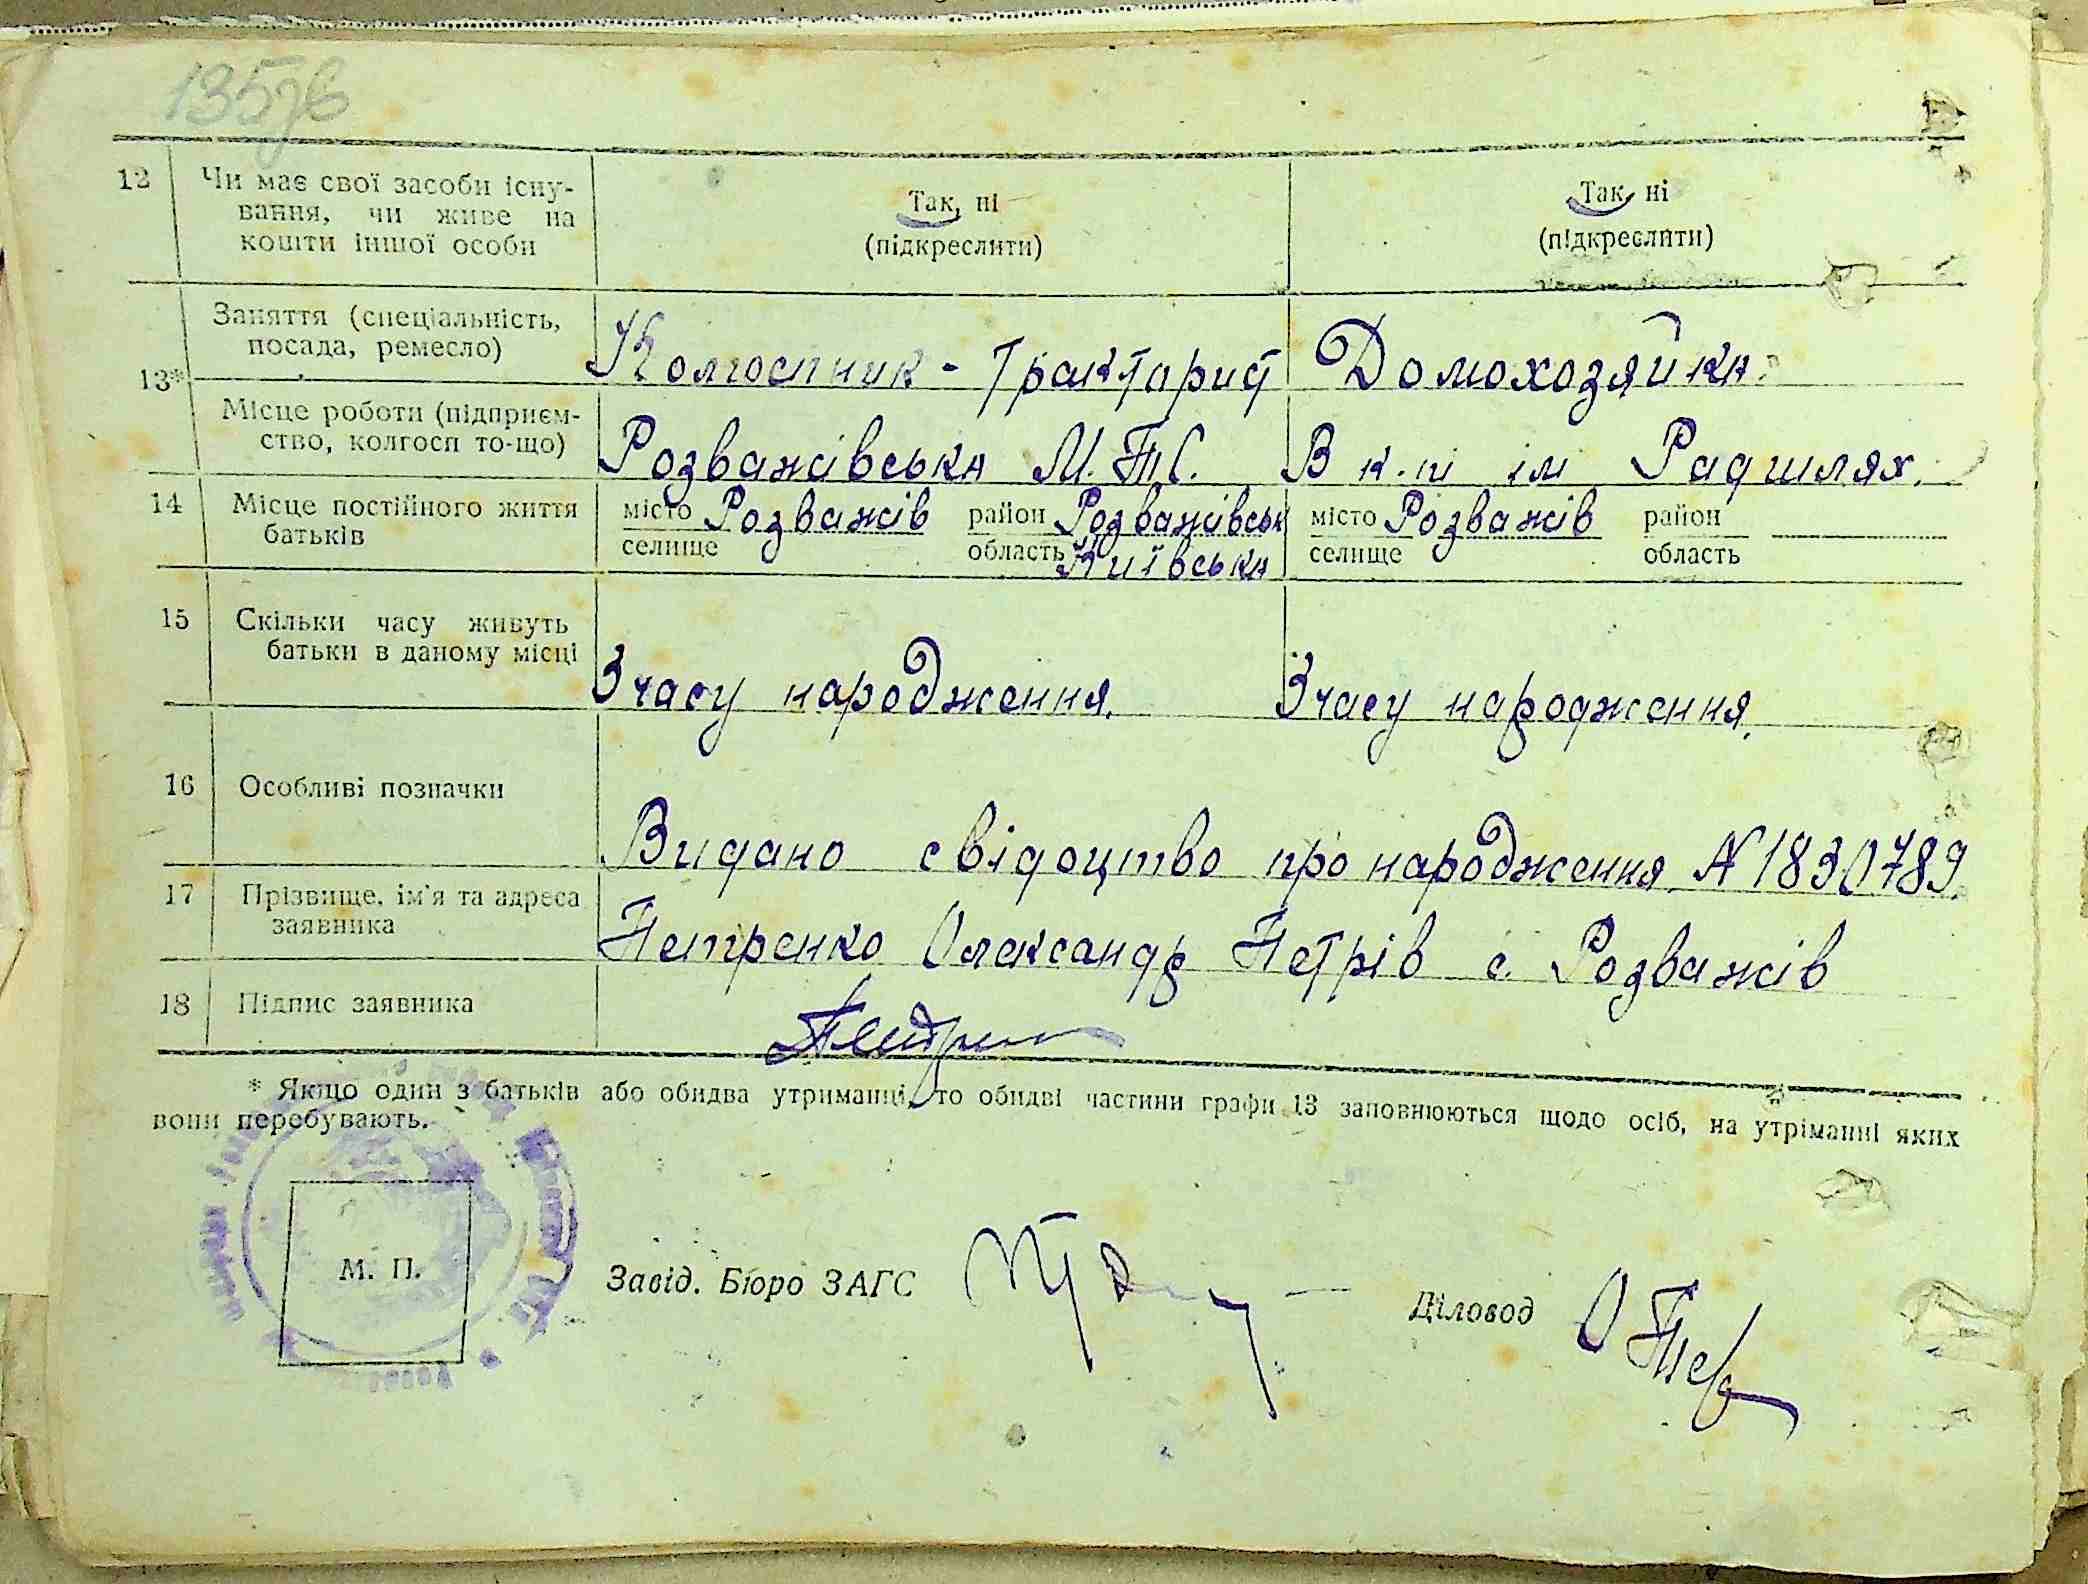 135зв
12 Чи має свої засоби існу-
вання, чи живе на
кошти іншої особи
Так, ні
(підкреслити)
Так, ні
(підкреслити)
13*
Заняття (спеціальність,
посада, ремесло)
Колгоспник - тракторист
Домохозяйка.
Місце роботи (підприєм-
ство, колгосп то-що)
Розважівська М.Т.С.
В к.-п ім Радшлях.
14 Місце постійного життя
батьків
місто Розважів район Розважівськ
селище область Київська
місто Розважів район
селище область
15 Скільки часу живуть
батьки в даному місці
З часу народження.
З часу народження.
16 Особливі позначки
Видано свідоцтво про народження N 1830789.
17 Прізвище, ім'я та адреса
заявника
Петренко Олександр Петрів с. Розважів
18 Підпис заявника
* Якщо один з батьків або обидва утриманці, то обидві частини графи 13 заповнюються щодо осіб, на утріманні яких
вони перебувають.
М. П.
Завід. Бюро ЗАГС
Діловод